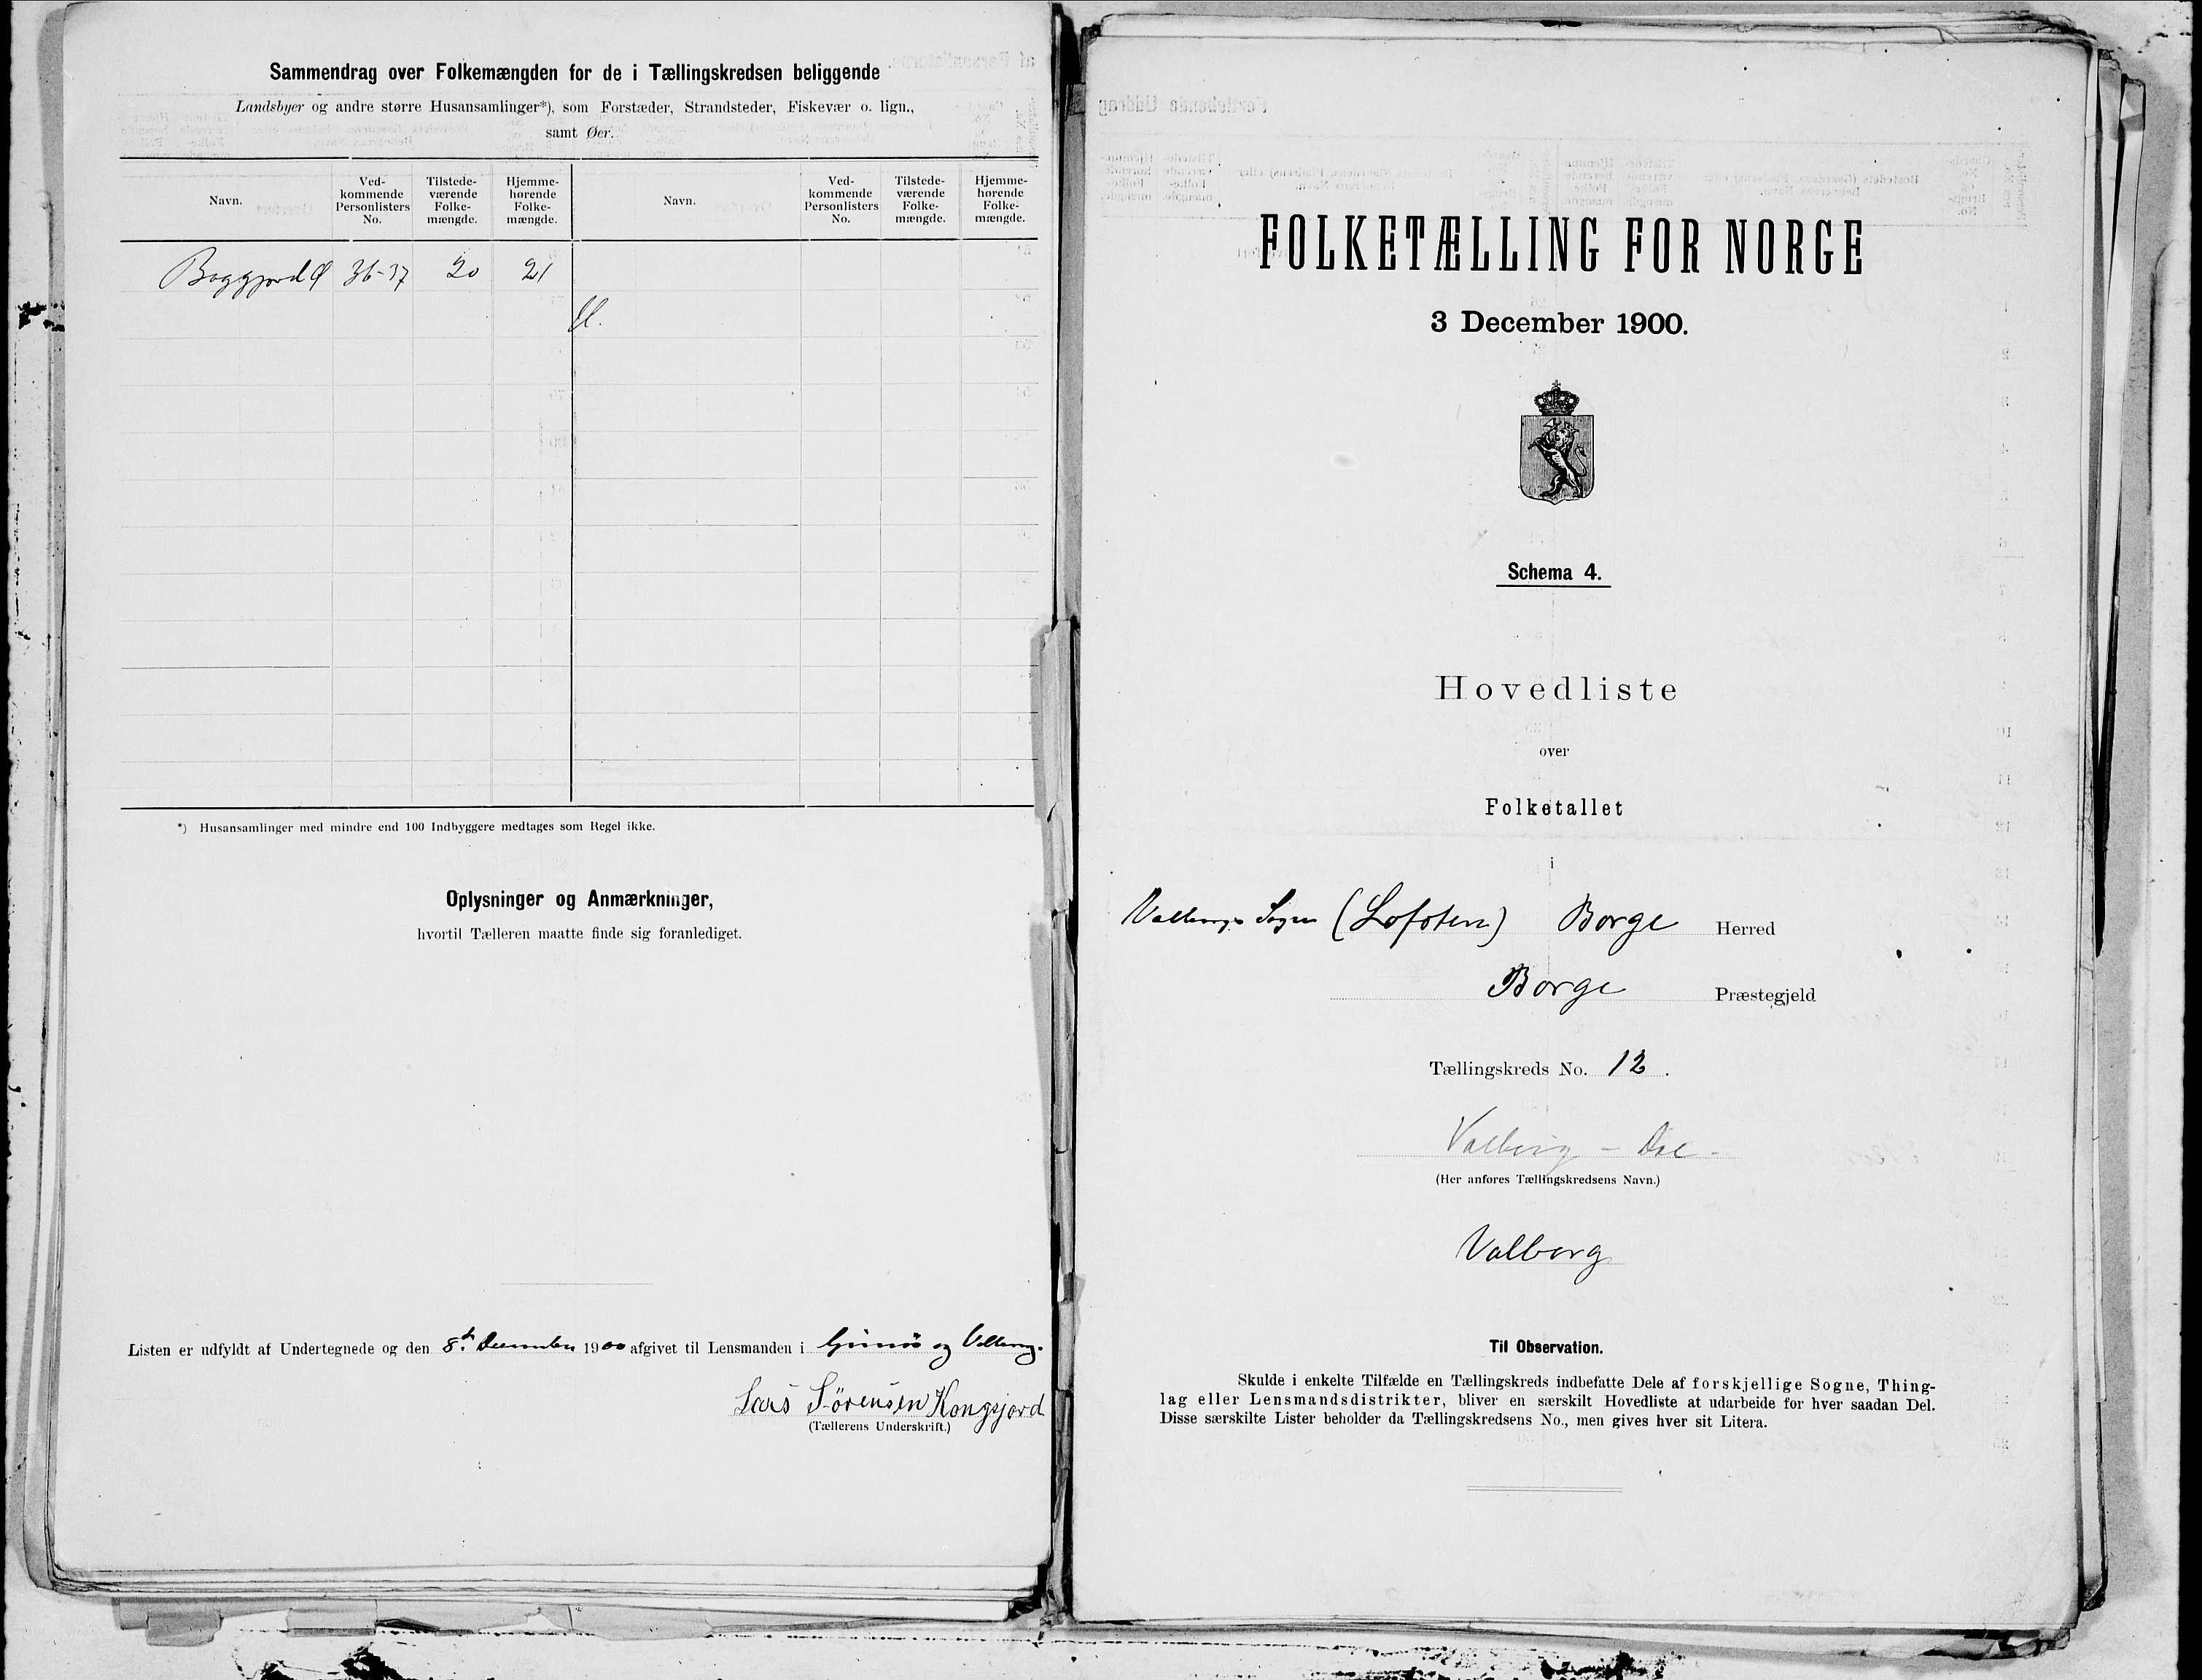 Sammendrag over Folkemængden for de i Tællingskredsen beliggende
Landsbyer og andre større Husansamlinger*), som Forstæder, Strandsteder, Fiskevær o. lign.,
samt Øer.
Navn. Ved-kommende Personlisters No. Tilstede-værende Folke-mængde. Hjemme-hørende Folke-mængde. Navn. Ved-kommende Personlisters No. Tilstede-værende Folke-mængde. Hjemme-hørende Folke-mængde.
36-37 20 21
*) Husansamlinger med mindre end 100 Indbyggere medtages som Regel ikke.
Oplysninger og Anmærkninger,
hvortil Tælleren maatte finde sig foranlediget.
Listen er udfyldt af Undertegnede og den 8de December 1900 afgivet til Lensmanden i Gimsø og Valberg.
Lars Sørensen Kongsjord
(Tællerens Underskrift.)
FOLKETÆLLING FOR NORGE
3 December 1900.
Schema 4.
Hovedliste
over
Folketallet
i
Valbergs Sogn (Lofoten) Borge Herred
Borge Præstegjeld
Tællingskreds No. 12.
Valberg - Dal -
(Her anføres Tællingskredsens Navn.)
Valberg
Til Observation.
Skulde i enkelte Tilfælde en Tællingskreds indbefatte Dele af forskjellige Sogne, Thing-
lag eller Lensmandsdistrikter, bliver en særskilt Hovedliste at udarbeide for hver saadan Del.
Disse særskilte Lister beholder da Tællingskredsens No., men gives hver sit Litera.